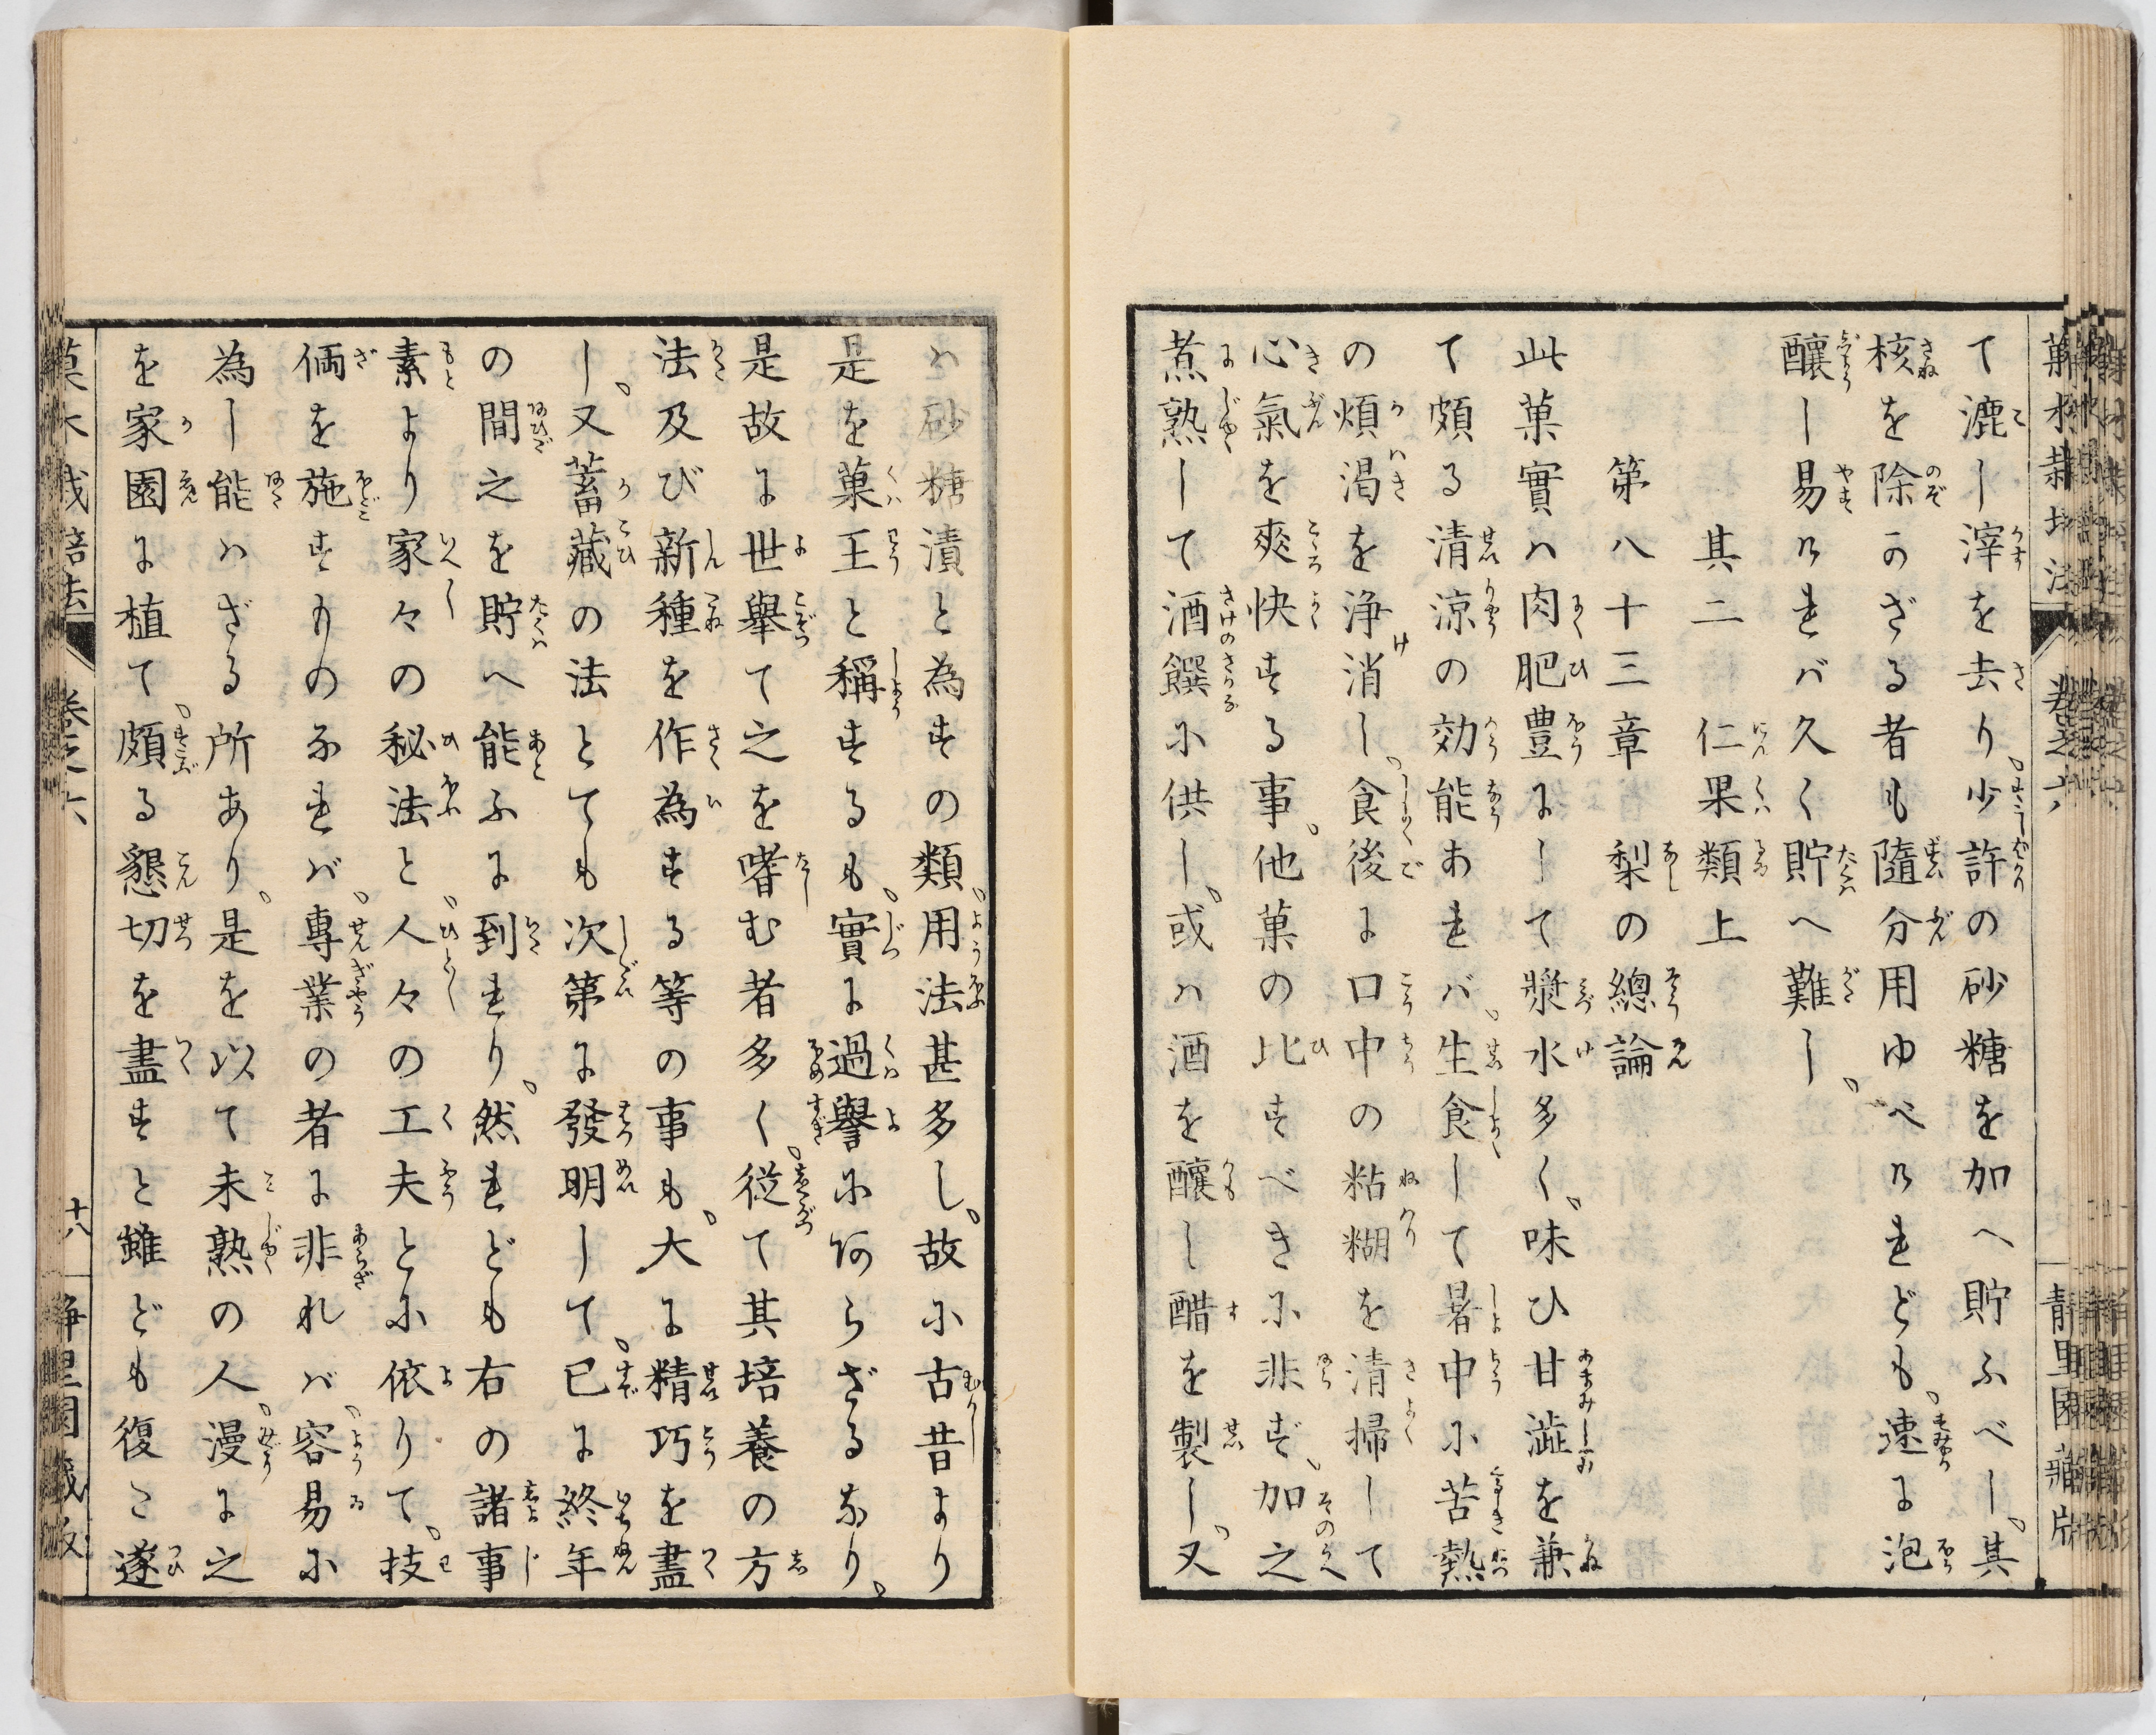 菓木栽培法 巻之六 静里園蔵版
て漉し滓を去り、少許の砂糖を加へ貯ふべし、其
核を除かざる者も隨分用ゆべけれども、速に泡
釀し易ければ久く貯へ難し、
其二 仁果類上
第八十三章 梨の總論
此菓實ハ肉肥豊にして漿水多く、味ひ甘澁を兼
て頗る清涼の効能あれバ、生食して暑中に苦熱
の煩渇を浄消し、食後に口中の粘糊を清掃して
心氣を爽快する事、他菓の比すべきに非ず、加之
煮熟して酒饌に供し、或ハ酒を釀し醋を製し、又
ハ砂糖漬と為すの類、用法甚多し、故に古昔より
是を菓王と稱するも、實に過譽に阿らざるなり、
是故に世擧て之を嗜む者多く、従て其培養の方
法及び新種を作為する等の事も、大に精巧を盡
し、又蓄藏の法とても次第に發明して、已に終年
の間之を貯へ能ふに到れり、然れども右の諸事
素より家々の秘法と、人々の工夫とに依りて、技
倆を施すものなれバ、專業の者に非れバ、容易に
為し能ハざる所あり、是を以て未熟の人、漫に之
を家園に植て、頗る懇切を盡すと雖ども復た遂
菓木栽培法 巻之六 十八 静里園蔵版